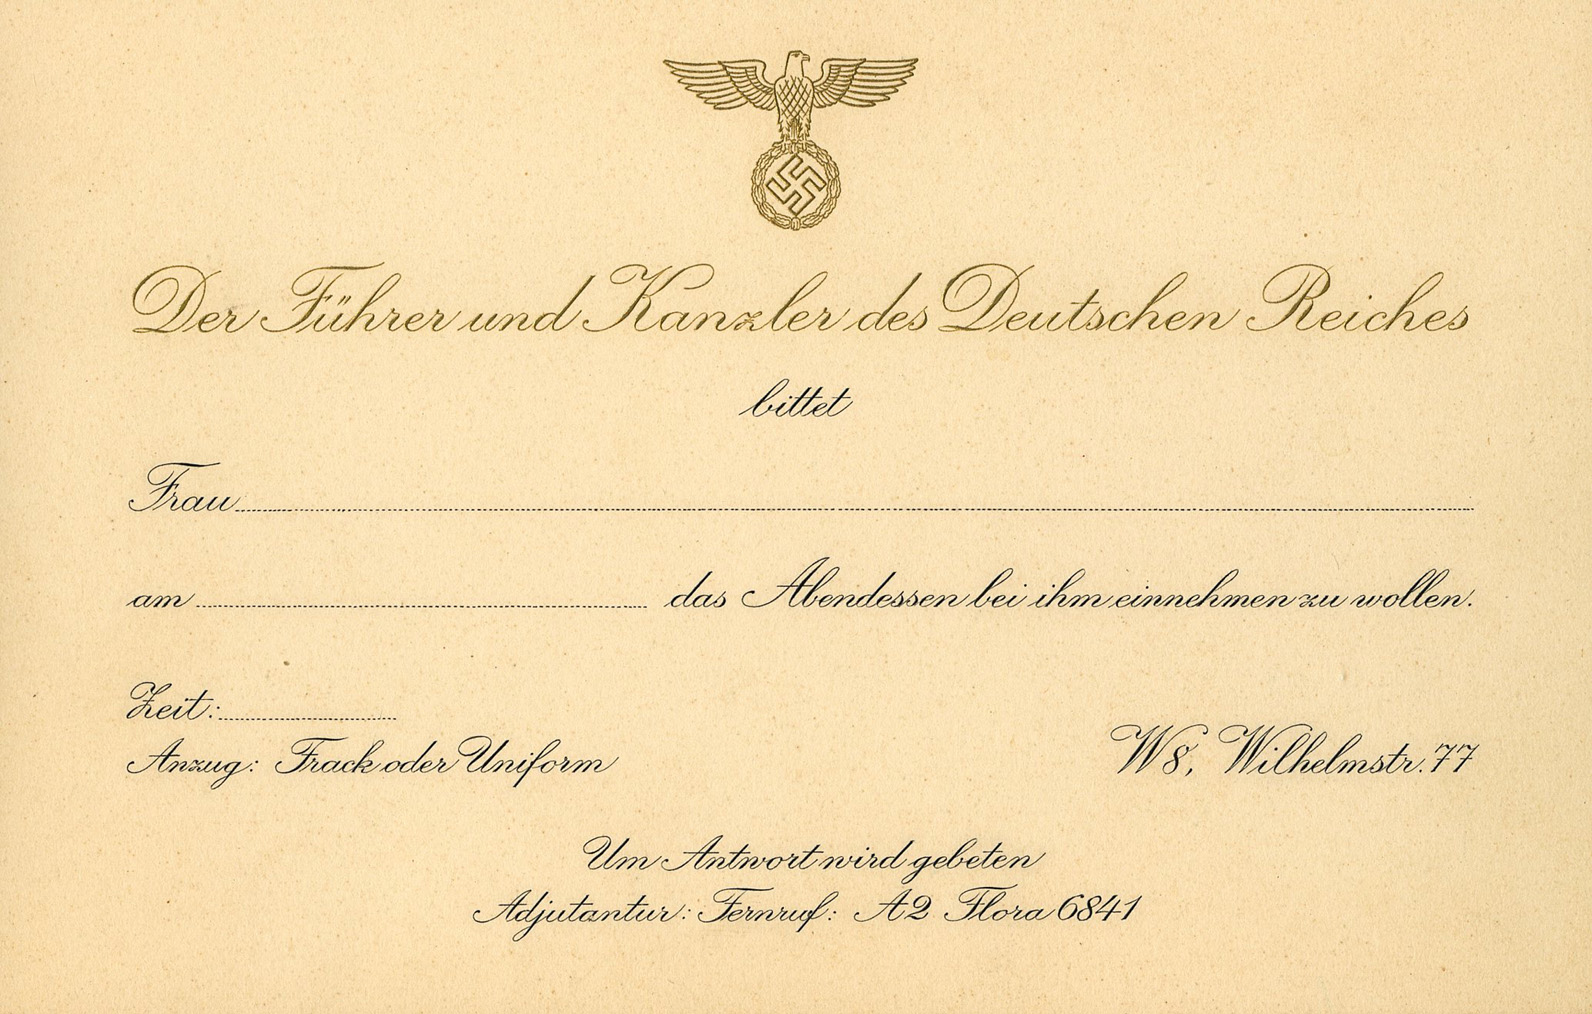 Der Führer und Kanzler des Deutschen Reiches
bittet
Frau
am das Abendessen bei ihm einnehmen zu wollen.
Zeit:
Anzug: Frack oder Uniform
W8, Wilhelmstr. 77
Um Antwort wird gebeten
Adjutantur: Fernruf: A2 Flora 6841